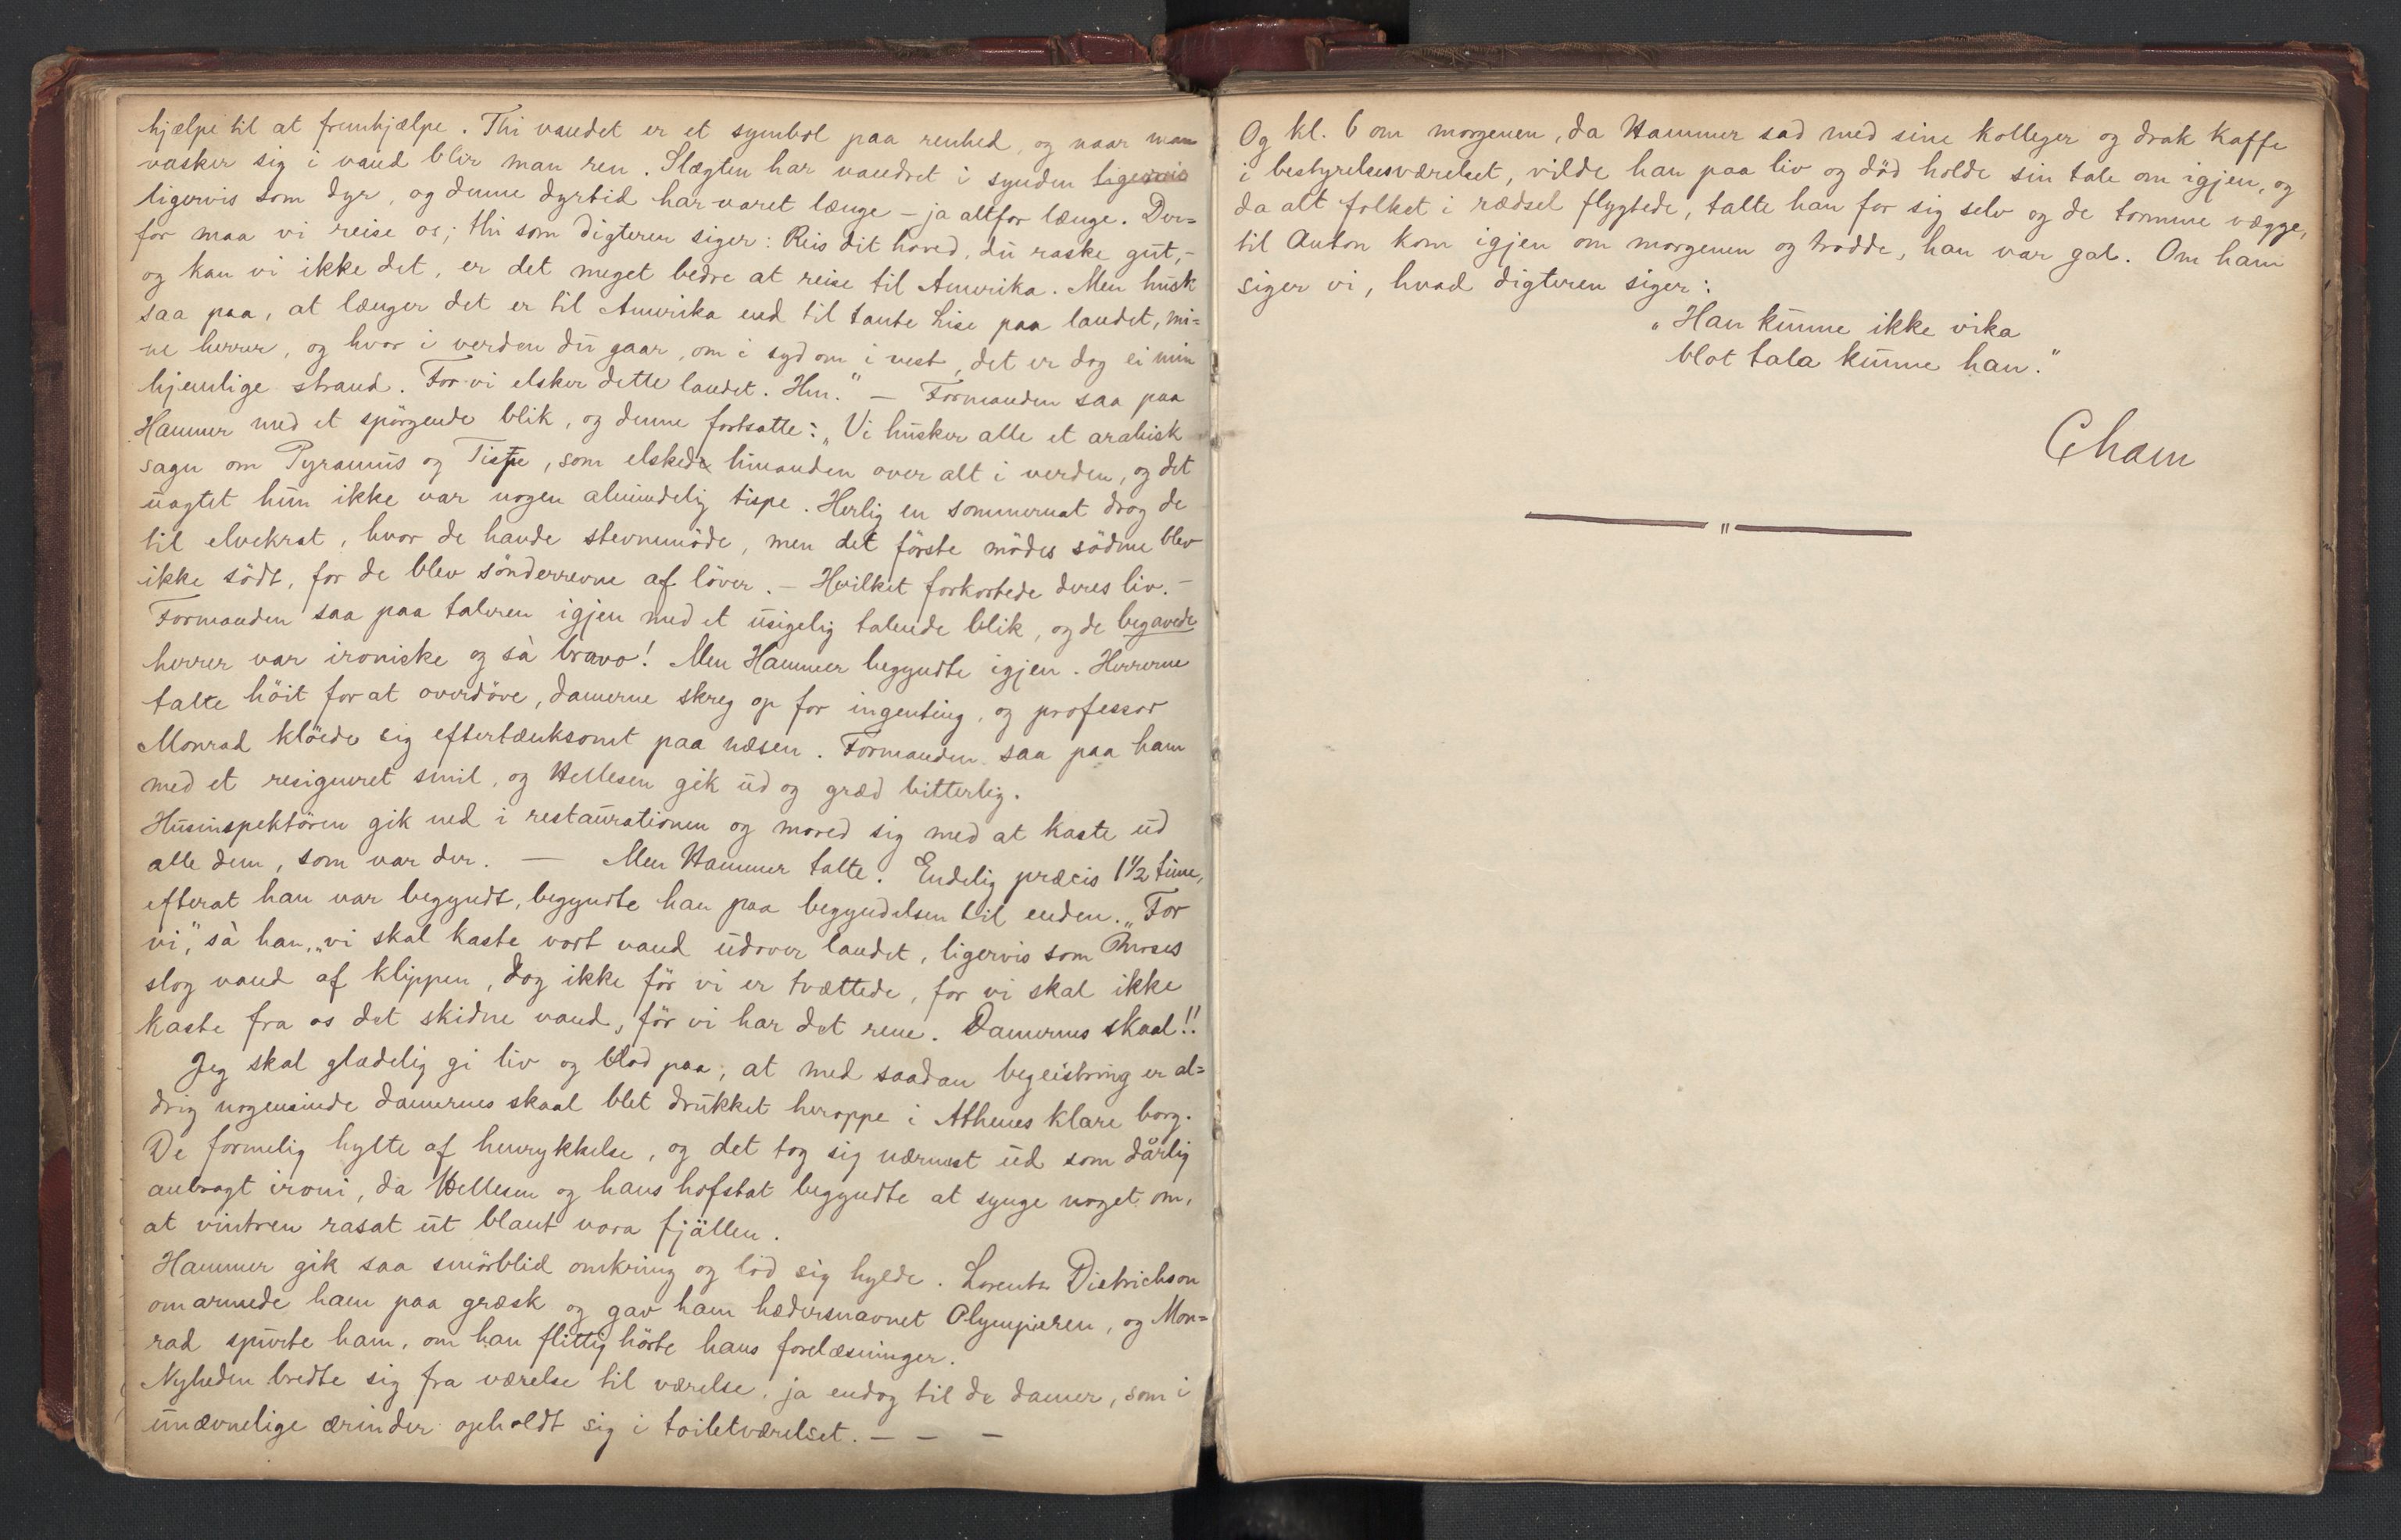 hjælpe til at fremhjælpe. Thi vandet er et symbol paa renhed, og naar man
vasker sig i vand blir man ren. Slægten har vandret i synden ligervis
ligervis som dyr, og denne dyrtid har varet længe – ja altfor længe. Der=
for maa vi reise os; thi som digteren siger: Reis dit hoved, du raske gut, –
og kan vi ikke det, er det meget bedre at reise til Amerika. Men husk
saa paa, at længer det er til Amerika end til tante Lise paa landet, mi=
ne herrer, og hvor i verden du gaar, om i syd om i vest, det er dog ei min
hjemlige strand. For vi elsker dette landet. Hm." – Formanden saa paa
Hammer med et spörgende blik, og denne fortsatte: „Vi husker alle et arabisk
sagn om Pyramus og Tispe, som elskede hinanden over alt i verden, og det
uagtet hun ikke var nogen almindelig tispe. Herlig en sommernat drog de
til elvekrat, hvor de havde stevnemöde, men det förste mödes södme blev
ikke södt, for de blev sönderrevne af löver. – Hvilket forkortede deres liv. –
Formanden saa paa taleren igjen med et usigelig talende blik, og de begavede
herrer var ironiske og sà bravo! Men Hammer begyndte igjen. Herrerne
talte höit for at overdöve, damerne skreg op for ingenting, og professor
Monrad klöede sig eftertænksomt paa næsen. Formanden saa paa ham
med et resigneret smil, og Hellesen gik ud og græd bitterlig.
Husinspektören gik ned i restaurationen og mored sig med at kaste ud
alle dem, som var der. — Men Hammer talte. Endelig præcis 1½ time,
efterat han var begyndt, begyndte han paa begyndelsen til enden. „For
vi," sà han, „vi skal kaste vort vand udover landet, ligervis som Moses
slog vand af klippen, dog ikke för vi er tvættede, for vi skal ikke
kaste fra os det skidne vand, för vi har det rene. Damernes skaal!!
Jeg skal gladelig gi liv og blod paa, at med saadan begeistring er al=
drig nogensinde damernes skaal blet drukket heroppe i Athenes klare borg.
De formelig hylte af henrykkelse, og det tog sig nærmest ud som dårlig
anbragt ironi, da Hellesen og hans hofstat begyndte at synge noget om,
at vintren rasat ut blant vora fjällen.
Hammer gik saa smörblid omkring og lod sig hylde. Lorentz Dietrichson
omarmede ham paa græsk og gav ham hædersnavnet Olympieren, og Mon=
rad spurte ham, om han flittig hörte hans forelæsninger.
Nyheden bredte sig fra værelse til værelse, ja endog til de damer, som i
unævnelige ærinder opholdt sig i toiletværelset. – – –
Og kl. 6 om morgenen, da Hammer sad med sine kolleger og drak kaffe
i bestyrelsesværelset, vilde han paa liv og död holde sin tale om igjen, og
da alt folket i rædsel flygtede, talte han for sig selv og de tomme vægge,
til Anton kom igjen om morgenen og trodde, han var gal. Om ham
siger vi, hvad digteren siger:
„Han kunne ikke vika
blot tala kunne han."
Cham
——— " ———